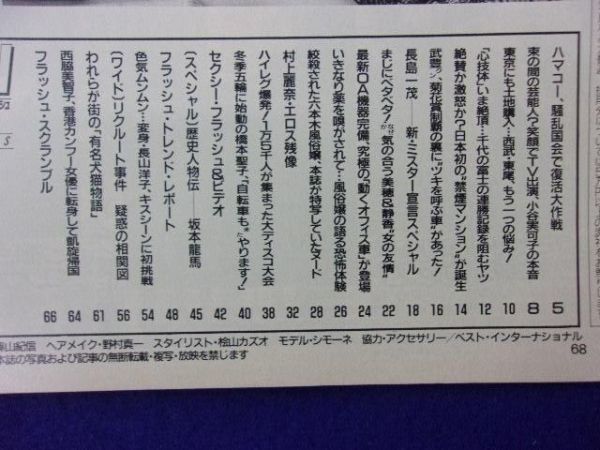 ハマコー、騒乱国会で復活大作戦 5
束の間の芸能人?笑顔でTV出演、小谷実可子の本音 8
東京にも土地購入…西武・東尾、もう一つの悩み! 10
「心技体」いま絶頂…千代の富士の連勝記録を阻むヤツ 12
絶賛か激怒か?日本初の"禁煙マンション"が誕生 14
武豊、菊花賞制覇の裏に"ツキを呼ぶ車"があった! 16
長島一茂――新・ミスター宣言スペシャル 18
まじにベタベタ!なぜか気の合う美穂&静香"女の友情" 22
最新OA機器完備、究極の「動くオフィス車」が登場 24
いきなり薬を嗅がされて…風俗嬢の語る恐怖体験 26
絞殺された六本木風俗嬢、本誌が特写していたヌード 28
村上麗奈・エロス残像 32
ハイレグ爆発!1万5千人が集まった大ディスコ大会 38
冬季五輪に始動の橋本聖子、"自転車も、やります!" 40
セクシー・フラッシュ&ビデオ 42
(スペシャル)歴史人物伝――坂本龍馬 45
フラッシュ・トレンド・レポート 48
色気ムンムン…変身・長山洋子、キスシーンに初挑戦 54
(ワイド)リクルート事件 疑惑の相関図 56
われらが街の「有名犬猫物語」 61
西脇美智子、"香港カンフー女優"に転身して凱旋帰国 64
フラッシュ・スクランブル 66
山紀信 ヘアメイク・野村真一 スタイリスト・桧山カズオ モデル・シモーネ 協力・アクセサリー/ベスト・インターナショナル
本誌の写真および記事の無断転載・複写・放映を禁じます
68